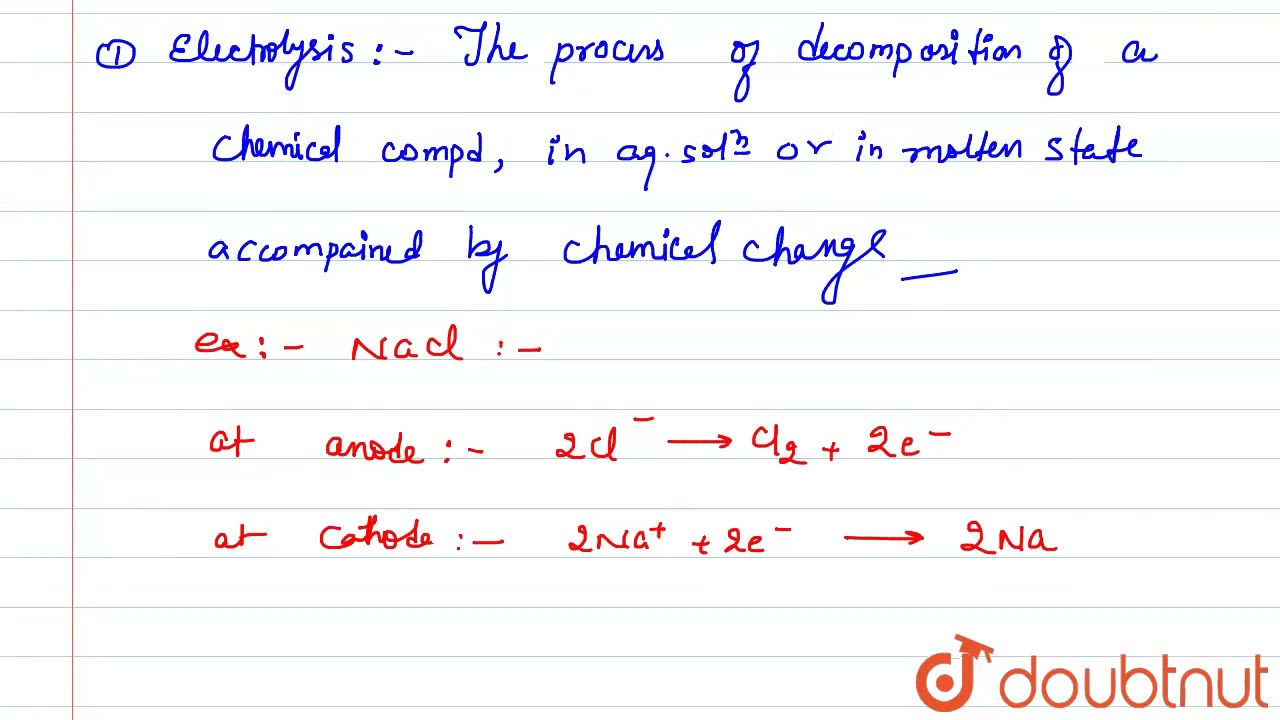 ① Electrolysis :- The process of decomposition of a
chemical compd, in aq. solⁿ or in molten state
accompained by chemical change
ex :- NaCl :-
at anode :- 2Cl⁻ ⟶ Cl₂ + 2e⁻
at Cathode :- 2Na⁺ + 2e⁻ ⟶ 2Na
doubtnut